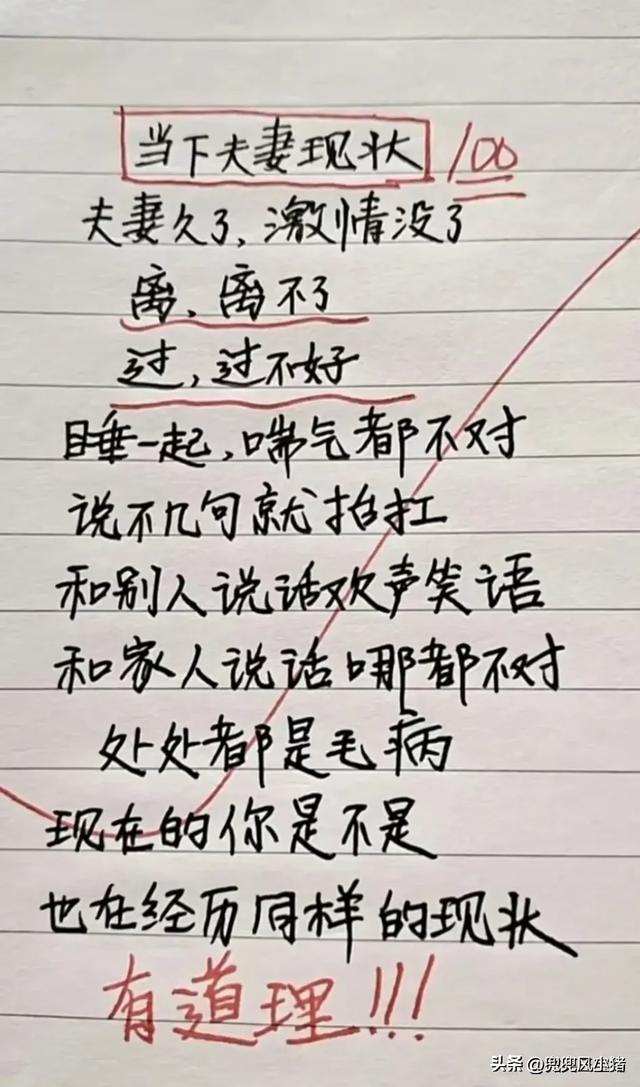 当下夫妻现状 100
夫妻久了,激情没了
离、离不了
过,过不好
睡一起,喘气都不对
说不几句就抬扛
和别人说话欢声笑语
和家人说话哪都不对
处处都是毛病
现在的你是不是
也在经历同样的现状
有道理!!!
头条 @兜兜风生猪